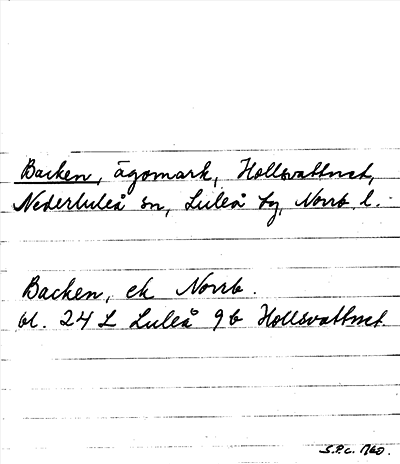 Backen, ägomark, Hollsvattnet,
Nederluleå sn, Luleå by, Norrb. l.
Backen, ek Norrb.
bl. 24 L Luleå 9b Hollsvattnet.